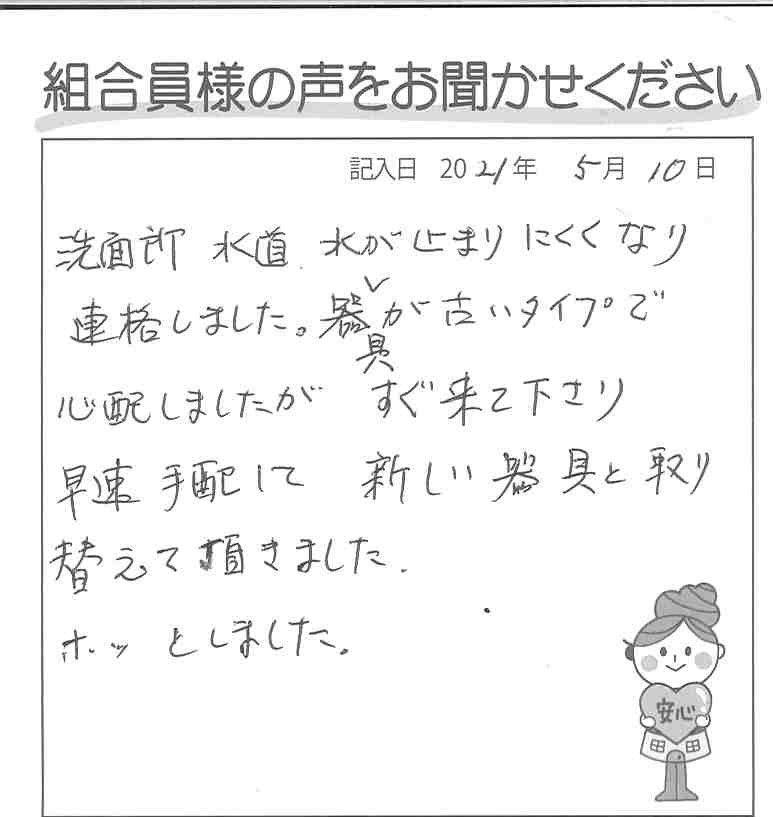 組合員様の声をお聞かせください
記入日 2021年 5月 10日
洗面所 水道 水が止まりにくくなり
連格しました。器具が古いタイプで
心配しましたが すぐ来て下さり
早速 手配して 新しい器具と取り
替えて頂きました.
ホッとしました。
安心